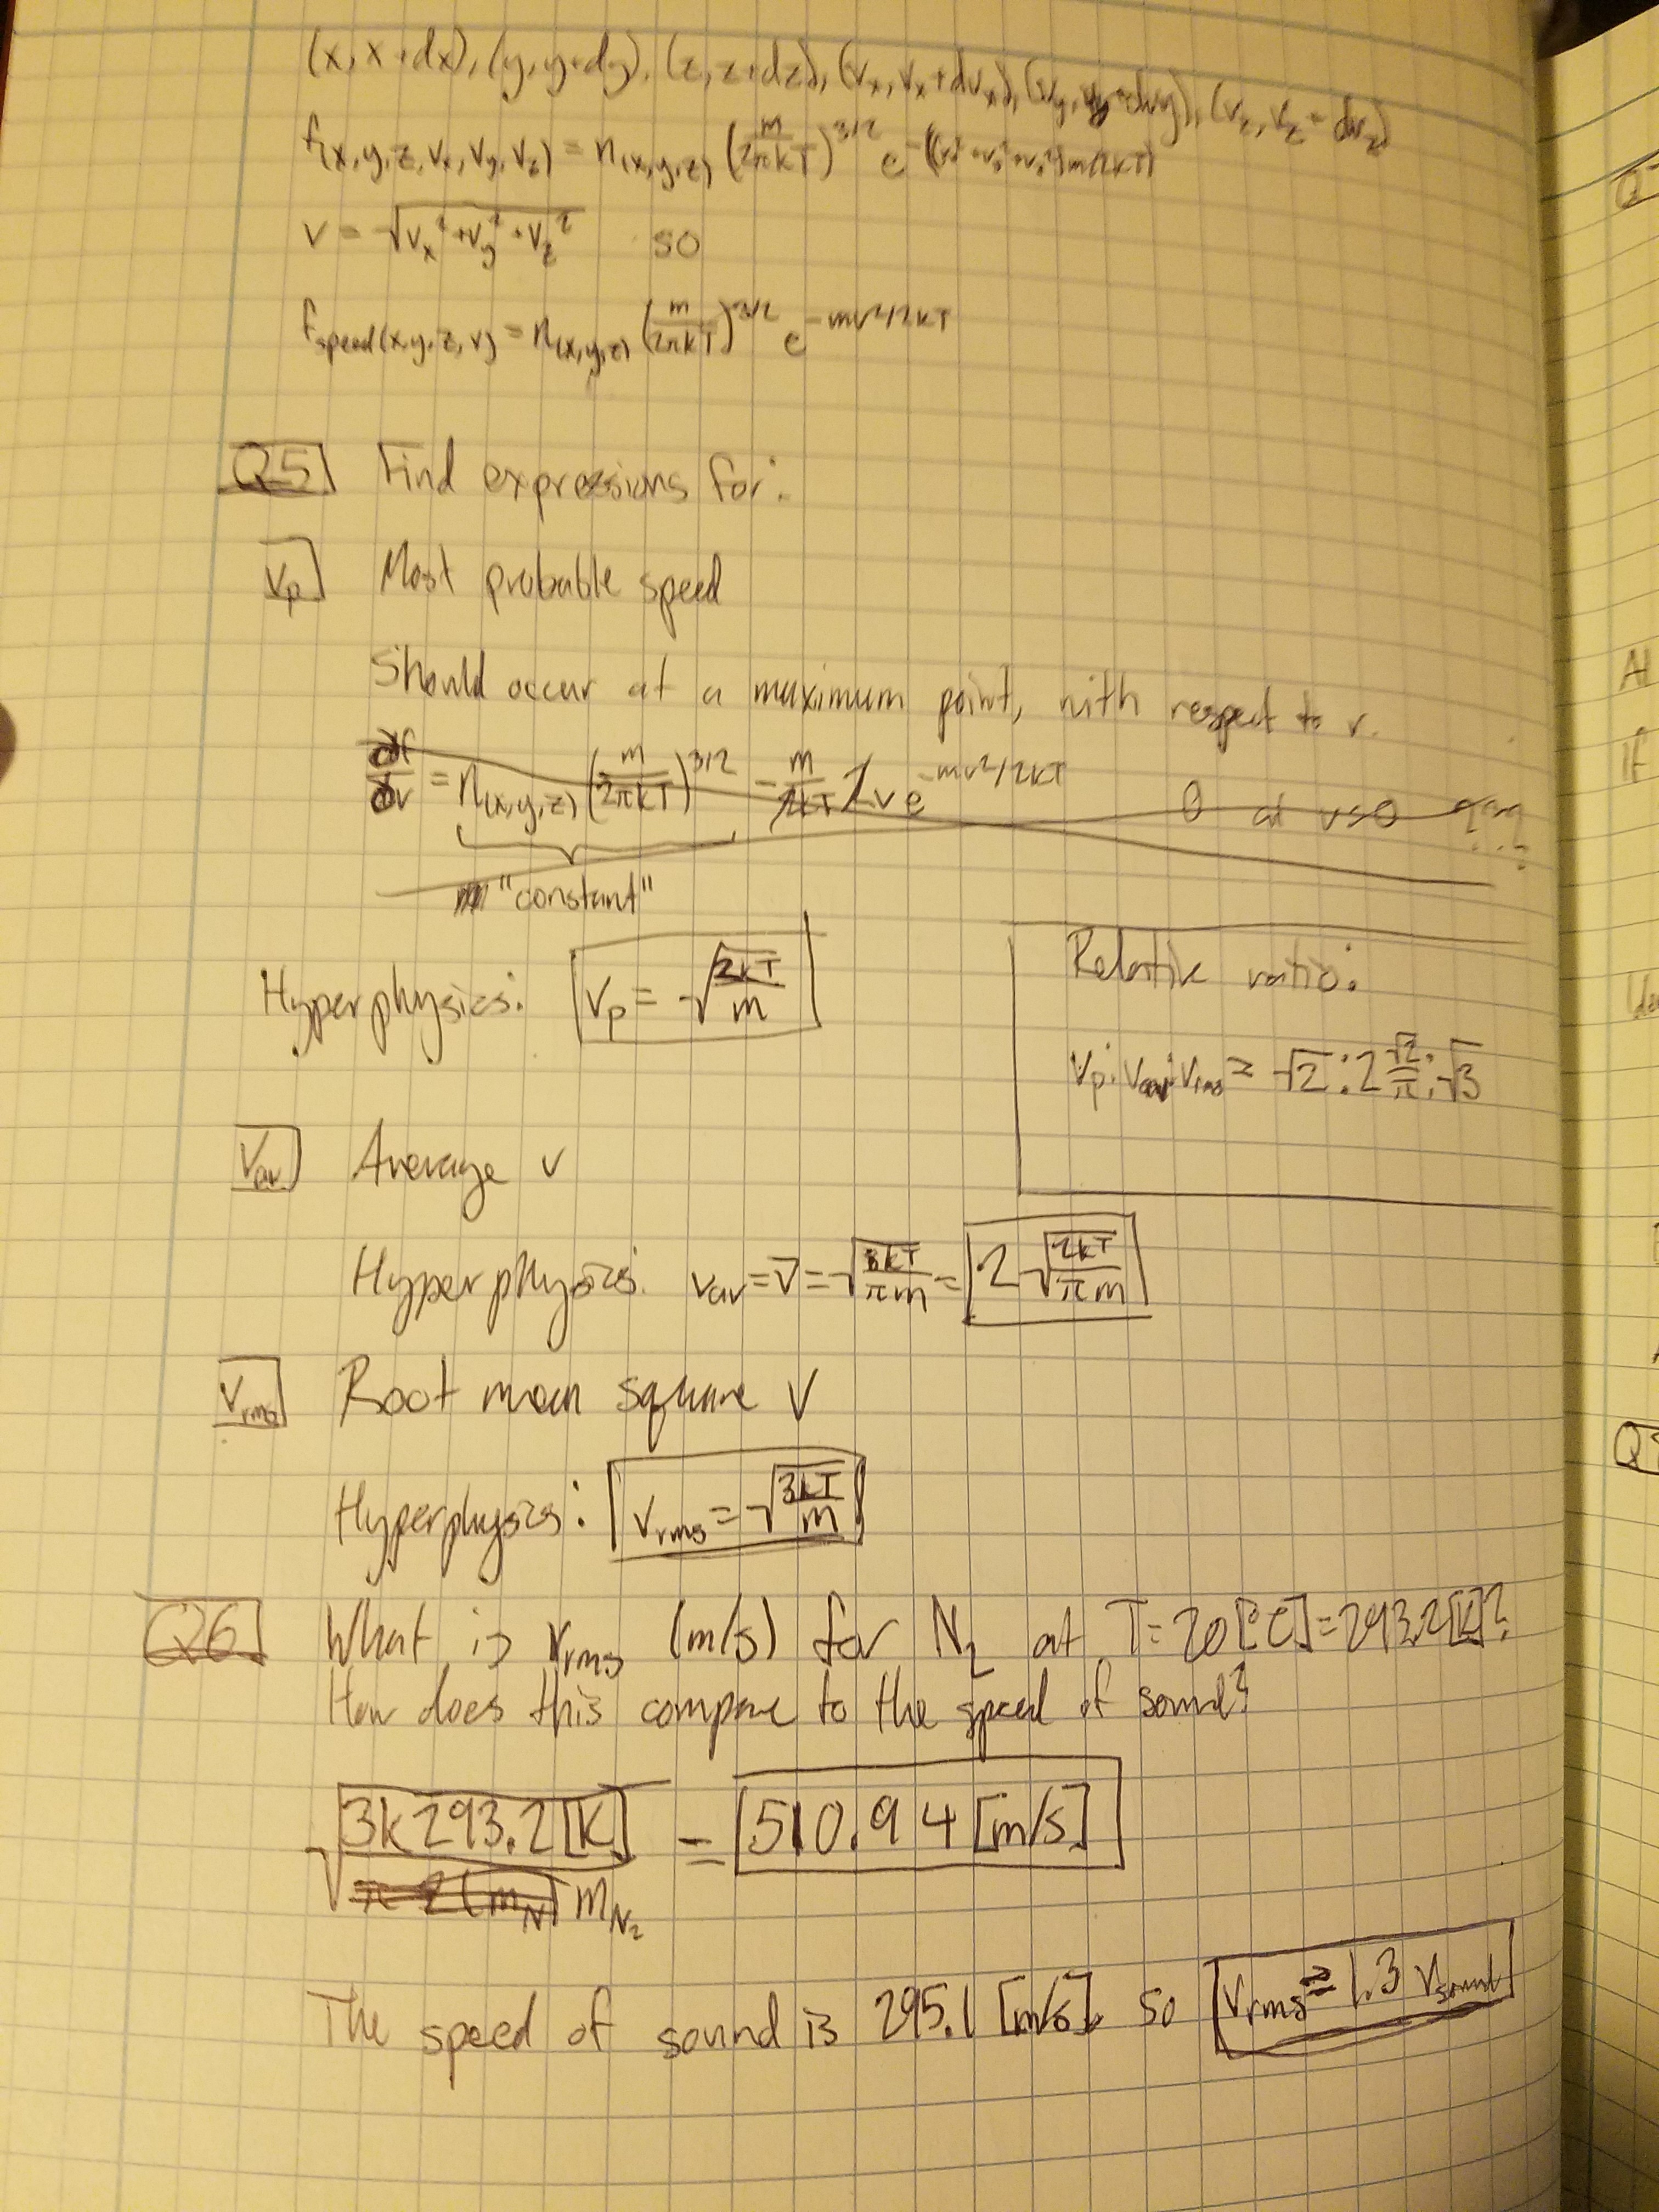 (x, x+dx), (y, y+dy), (z, z+dz), (vx, vx+dvx), (vy, vy+dvy), (vz, vz+dvz)
f(x,y,z,vx,vy,vz) = n(x,y,z) (m/2πkT)^3/2 e^-((vx²+vy²+vz²)m/2kT)
v = √vx²+vy²+vz² so
fspeed(x,y,z,v) = n(x,y,z) (m/2πkT)^3/2 e^-mv²/2kT
Q5 Find expressions for:
vp Most probable speed
Should occur at a maximum point, with respect to v.
df/dv = n(x,y,z) (m/2πkT)^3/2 -m/2kT 2v e^-mv²/2kT 0 at v=0
"constant"
Hyperphysics: vp = √2kT/m
Relative ratio:
vp:vav:vrms = √2:2√2/π:√3
vav Average v
Hyperphysics: vav = v̄ = √8kT/πm = 2√2kT/πm
vrms Root mean square v
Hyperphysics: vrms = √3kT/m
Q6 What is vrms (m/s) for N2 at T=20[°C]=293.2[K]?
How does this compare to the speed of sound?
√3k293.2[K]/mN2 = 510.94[m/s]
The speed of sound is 295.1 [m/s], so vrms ≈ 1.3 vsound